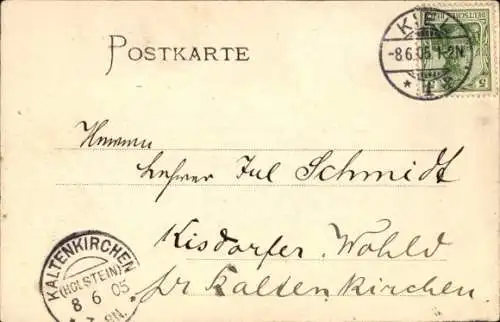 POSTKARTE
KIEL
-8.6.05 1-2N
* 1 *
DEUTSCHES REICH
5
Herrn
Lehrer Jul Schmidt
Kisdorfer. Wohld
pr Kaltenkirchen
KALTENKIRCHEN
(HOLSTEIN)
8 6 05